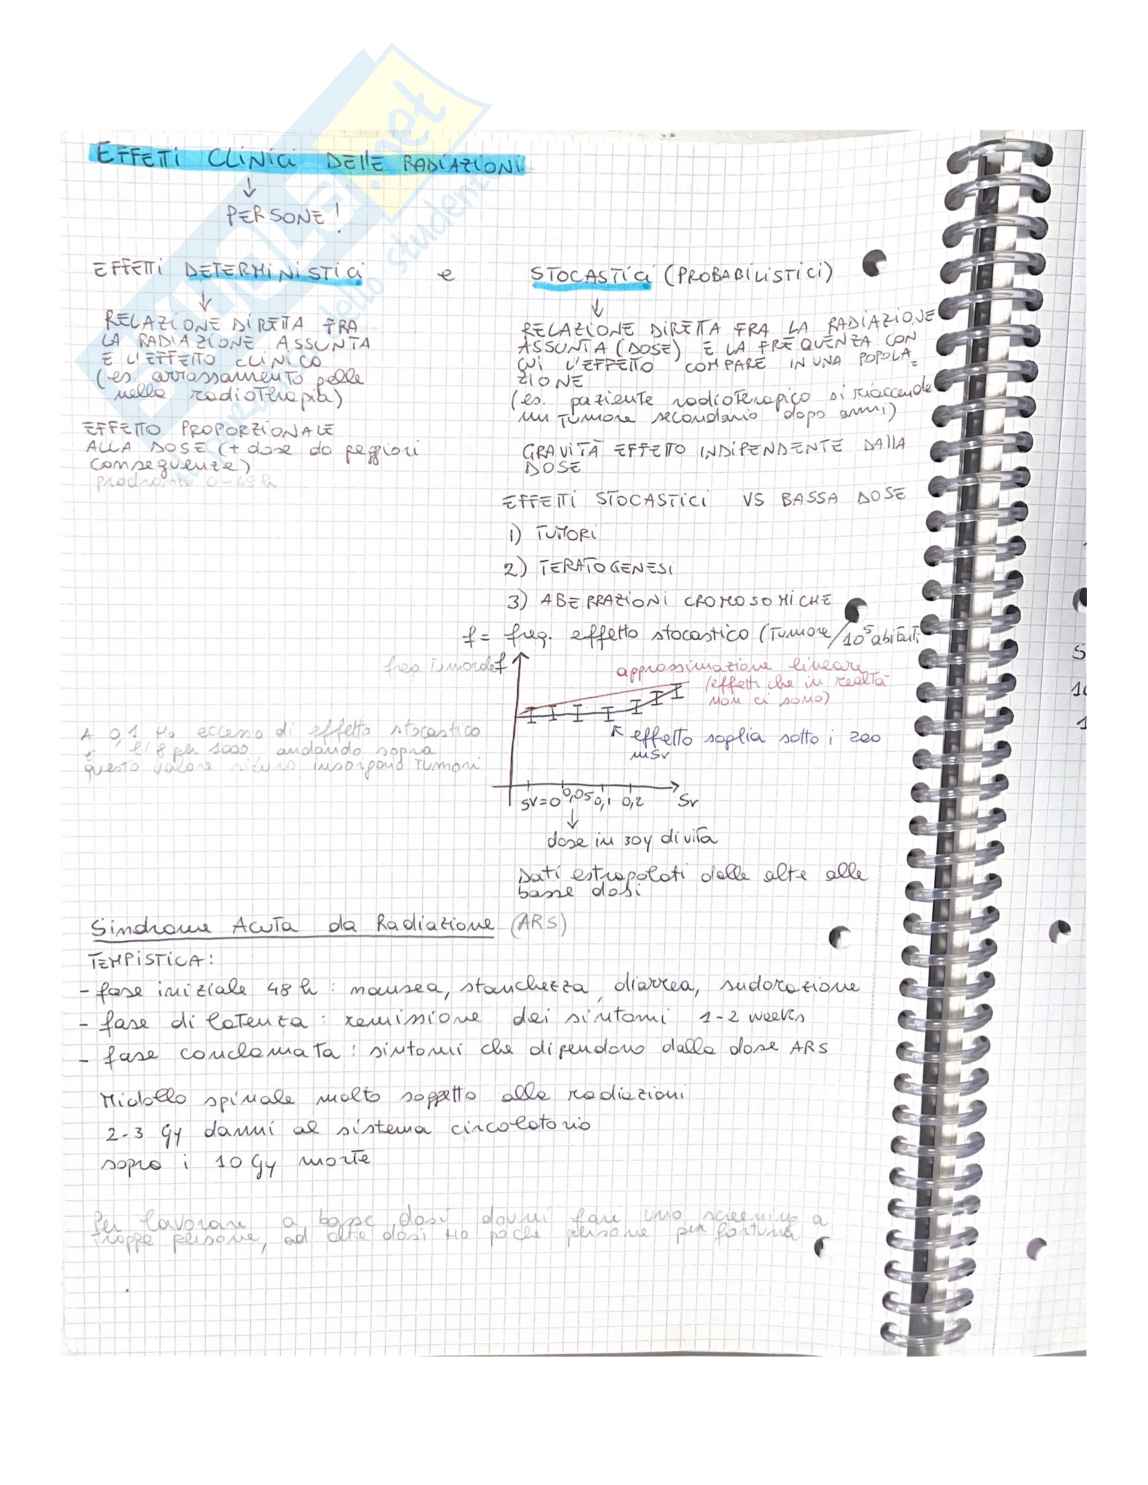 EFFETTI CLINICI DELLE RADIAZIONI
↓
PERSONE!
EFFETTI DETERMINISTICI e STOCASTICI (PROBABILISTICI)
↓
RELAZIONE DIRETTA FRA
LA RADIAZIONE ASSUNTA
E L'EFFETTO CLINICO
(es. arrossamento pelle
nella radioterapia)
EFFETTO PROPORZIONALE
ALLA DOSE (+ dose do peggiori
conseguenze)
0-48h
↓
RELAZIONE DIRETTA FRA LA RADIAZIONE
ASSUNTA (DOSE) E LA FREQUENZA CON
CUI L'EFFETTO COMPARE IN UNA POPOLA-
ZIONE
(es. paziente radioterapico si riaccende
un tumore secondario dopo anni)
GRAVITÀ EFFETTO INDIPENDENTE DALLA
DOSE
EFFETTI STOCASTICI VS BASSA DOSE
1) TUMORI
2) TERATOGENESI
3) ABERRAZIONI CROMOSOMICHE
f = freq. effetto stocastico (tumore/10⁵ abitanti
f
approssimazione lineare
(effetti che in realtà
non ci sono)
effetto soglia sotto i 200
mSv
A 0,1 ho eccesso di effetto stocastico
8 per 1000, andando sopra
questo valore sicuro insorgono tumori
SV=0 0,05 0,1 0,2 Sv
↓
dose in 30y di vita
Dati estrapolati dalle alte alle
basse dosi
Sindrome Acuta da Radiazione (ARS)
TEMPISTICA:
- fase iniziale 48 h : nausea, stanchezza, diarrea, sudorazione
- fase di latenza : remissione dei sintomi 1-2 weeks
- fase conclamata : sintomi che dipendono dalla dose ARS
Midollo spinale molto soggetto alle radiazioni
2-3 Gy danni al sistema circolatorio
sopra i 10 Gy morte
Per lavorare a basse dosi dovrei fare uno screening a
troppe persone, ad alte dosi ho poche persone per fortuna